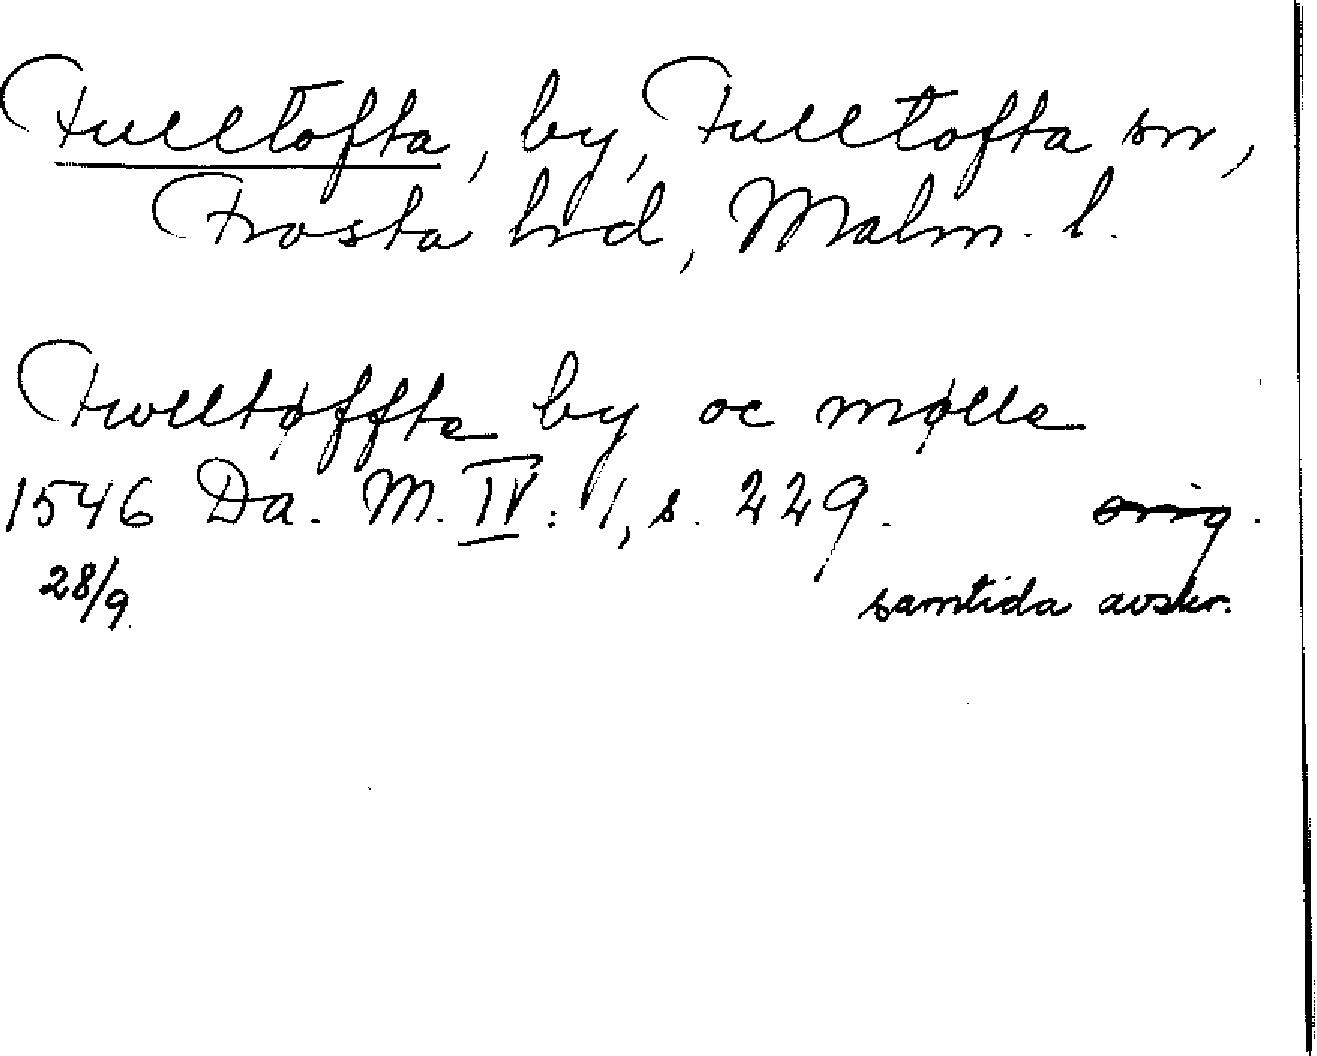 Fulltofta, by, Fulltofta sn,
Frosta hrd, Malm. l.
Fwlltøffte by oc mølle
1546 Da. M. IV: 1, s. 229. orig.
28/9. samtida avskr.